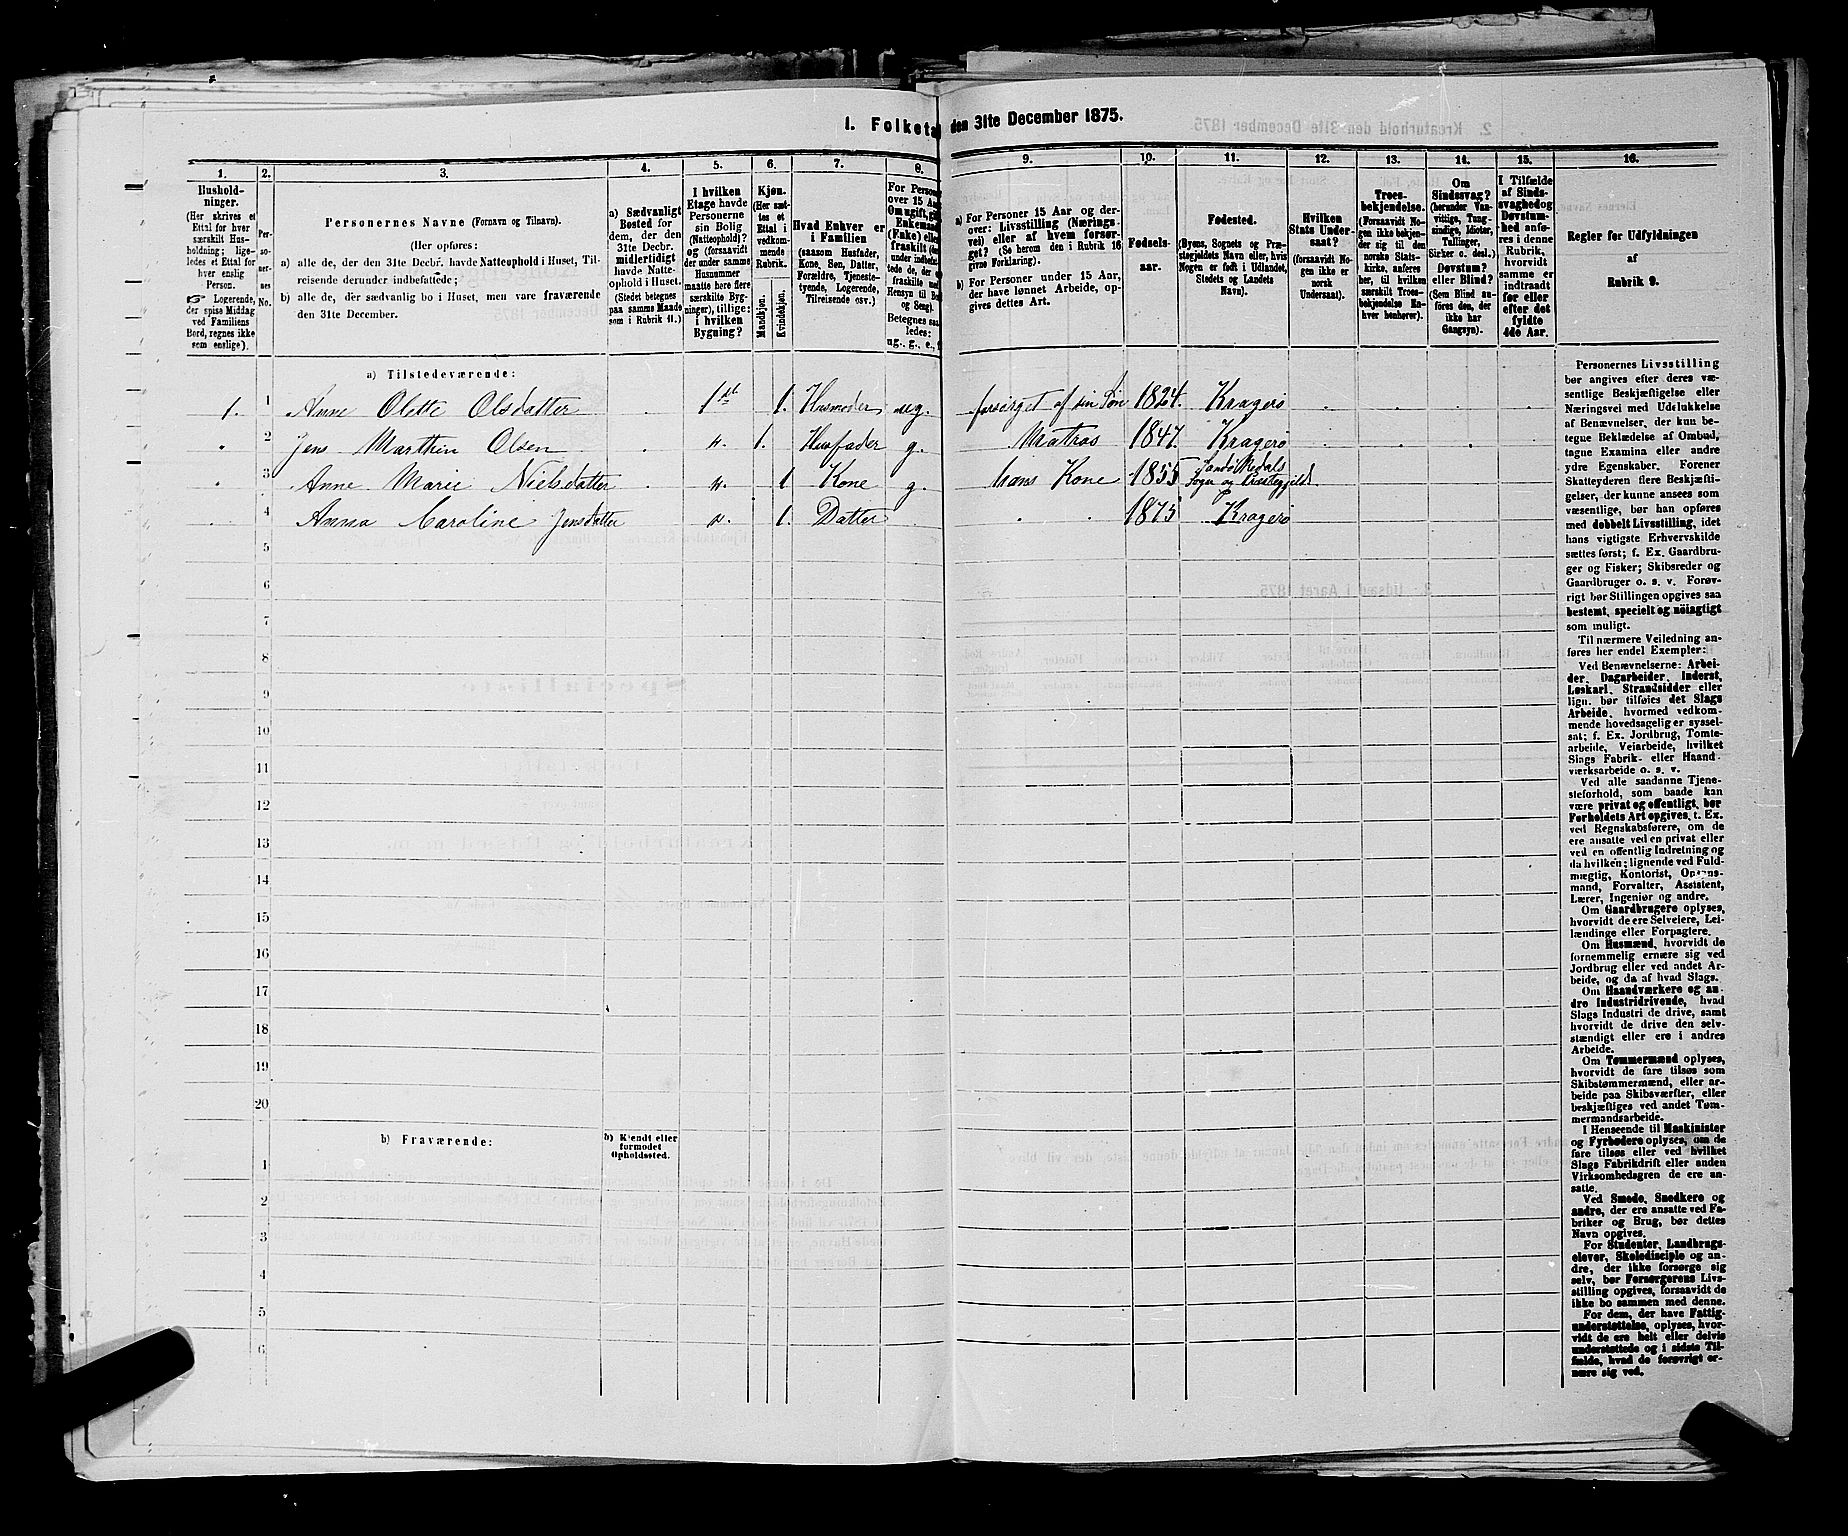 1. Folketa den 31te December 1875.
1. 2. 3. 4. 5. 6. 7. 8. 9. 10. 11. 12. 13. 14. 15. 16.
Hushold-
ninger.
(Her skrives et
Ettal for hver
særskilt Hus-
holdning; lige-
ledes et Ettal for
hver enslig
Person.
Logerende,
der spise Middag
ved Familiens
Bord, regnes ikke
som enslige).
Per-
so-
ner-
nes
No.
Personernes Navne (Fornavn og Tilnavn).
(Her opføres:
a) alle de, der den 31te Decbr. havde Natteophold i Huset, Til-
reisende derunder indbefattede;
b) alle de, der sædvanlig bo i Huset, men vare fraværende
den 31te December.
a) Sædvanligt
Bosted for
dem, der den
31te Decbr.
midlertidigt
havde Natte-
ophold i Huset.
(Stedet betegnes
paa samme Maade
som i Rubrik 11.)
I hvilken
Etage havde
Personerne
sin Bolig
(Natteophold)?
og (forsaavidt
der under samme
Husnummer
maatte høre flere
særskilte Byg-
ninger), tillige:
i hvilken
Bygning?
Kjøn.
(Her sæt-
tes et
Ettal i
vedkom-
mende
Rubrik.
Mandkjøn.
Kvindekjøn.
Hvad Enhver er
i Familien
(saasom Husfader,
Kone, Søn, Datter,
Forældre, Tjeneste-
tyende, Logerende,
Tilreisende osv.)
For Person
over 15 Aar
Om ugift, gif
Enkemand
(Enke) elle
fraskilt (de
under indbefat
tede de, der e
fraskilte med
Hensyn til Bo
og Seng).
Betegnes saa
ledes:
ug., g., e., f
a) For Personer 15 Aar og der-
over: Livsstilling (Nærings-
vei) eller af hvem forsør-
get? (Se herom den i Rubrik 16
givne Forklaring).
b) For Personer under 15 Aar,
der have lønnet Arbeide, op-
gives dettes Art.
Fødsels-
aar.
Fødested.
(Byens, Sognets og Præ-
stegjeldets Navn eller, hvis
Nogen er født i Udlandet,
Stedets og Landets
Navn).
Hvilken
Stats Under-
saat?
(forsaavidt No-
gen ikke er
norsk
Undersaat).
Troes-
bekjendelse.
(Forsaavidt No-
gen ikke bekjen-
der sig til den
norske Stats-
kirke, anføres
her, til hvilken
særskilt Troes-
bekjendelse En-
hver henhører).
Om
Sindssvag?
(herunder Van-
vittige, Tung-
sindige, Idioter,
Tullinger,
Sinker o. desl.)
Døvstum?
eller Blind?
(Som Blind an-
føres den, der
ikke har
Gangsyn).
I Tilfælde
af Sinds-
svaghed og
Døvstum-
hed anfø-
res i denne
Rubrik,
hvorvidt
samme er
indtraadt
før eller
efter det
fyldte
4de Aar.
Regler for Udfyldningen
af
Rubrik 9.
a) Tilstedeværende:
1. 1 Anne Olette Olsdatter 1 st 1. Husmoder ug. forsørget af sin Søn 1824. Kragerø
2 Jens Marthin Olsen 1. Husfader g. Matros 1847. Kragerø
3 Anne Marie Nielsdatter 1 Kone g. hans Kone 1855
4 Anna Caroline Jensdatter 1. Datter 1875 Kragerø
5
6
7
8
9
10
11
12
13
14
15
16
17
18
19
20
b) Fraværende:
b) Kjendt eller
formodet
Opholdssted.
1
2
3
4
5
6
Personernes Livsstilling
bør angives efter deres væ-
sentlige Beskjæftigelse eller
Næringsvei med Udelukkelse
af Benævnelser, der kun be-
tegne Beklædelse af Ombud,
tagne Examina eller andre
ydre Egenskaber. Forener
Skatteyderen flere Beskjæfti-
gelser, der kunne ansees som
væsentlige, bør han opføres
med dobbelt Livsstilling, idet
hans vigtigste Erhvervskilde
sættes først; f. Ex. Gaardbru-
ger og Fisker; Skibsreder og
Gaardbruger o. s. v. Forøv-
rigt bør Stillingen opgives saa
bestemt, specielt og nöiagtigt
som muligt.
Til nærmere Veiledning an-
føres her endel Exempler:
Ved Benævnelserne: Arbei-
der, Dagarbeider, Inderst,
Løskarl, Strandsidder eller
lign. bør tilføies det Slags
Arbeide, hvormed vedkom-
mende hovedsagelig er syssel-
sat; f. Ex. Jordbrug, Tomte-
arbeide, Veiarbeide, hvilket
Slags Fabrik- eller Haand-
værksarbeide o. s. v.
Ved alle saadanne Tjene-
steforhold, som baade kan
være privat og offentligt, bør
Forholdets Art opgives, t. Ex.
ved Regnskabsførere, om de
ere ansatte ved en privat eller
ved en offentlig Indretning og
da hvilken; lignende ved Fuld-
mægtig, Kontorist, Opsyns-
mand, Forvalter, Assistent,
Lærer, Ingeniør og andre.
Om Gaardbrugere oplyses,
hvorvidt de ere Selveiere, Lei-
lændinge eller Forpagtere.
Om Husmænd, hvorvidt de
fornemmelig ernære sig ved
Jordbrug eller ved andet Ar-
beide, og da af hvad Slags.
Om Haandværkere og an-
dre Industridrivende, hvad
Slags Industri de drive, samt
hvorvidt de drive den selv-
stændigt eller ere i andres
Arbeide.
Om Tømmermænd oplyses,
hvorvidt de fare tilsøs som
Skibstømmermænd, eller ar-
beide paa Skibsværfter, eller
beskjæftiges ved andet Tøm-
mermandsarbeide.
I Henseende til Maskinister
og Fyrbødere oplyses, om de
fare tilsøs eller ved hvilket
Slags Fabrikdrift eller anden
Virksomhedsgren de ere an-
satte.
Ved Smede, Snedkere og
andre, der ere ansatte ved Fa-
briker og Brug, bør dettes
Navn opgives.
For Studenter, Landbrugs-
elever, Skoledisciple og an-
dre, der ikke forsørge sig
selv, bør Forsørgerens Livs-
stilling opgives, forsaavidt de
ikke bo sammen med denne.
For dem, der have Fattig-
understøttelse, oplyses, hvor-
vidt de ere helt eller delvis
understøttede og i sidste Til-
fælde, hvad de forøvrigt er-
nære sig ved.